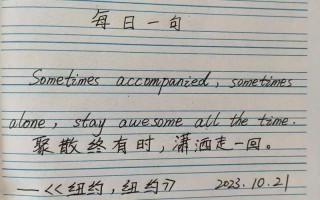 每日一句
Sometimes accompanied, sometimes
alone, stay awesome all the time.
聚散终有时，潇洒走一回。
——<<纽约，纽约>> 2023.10.21